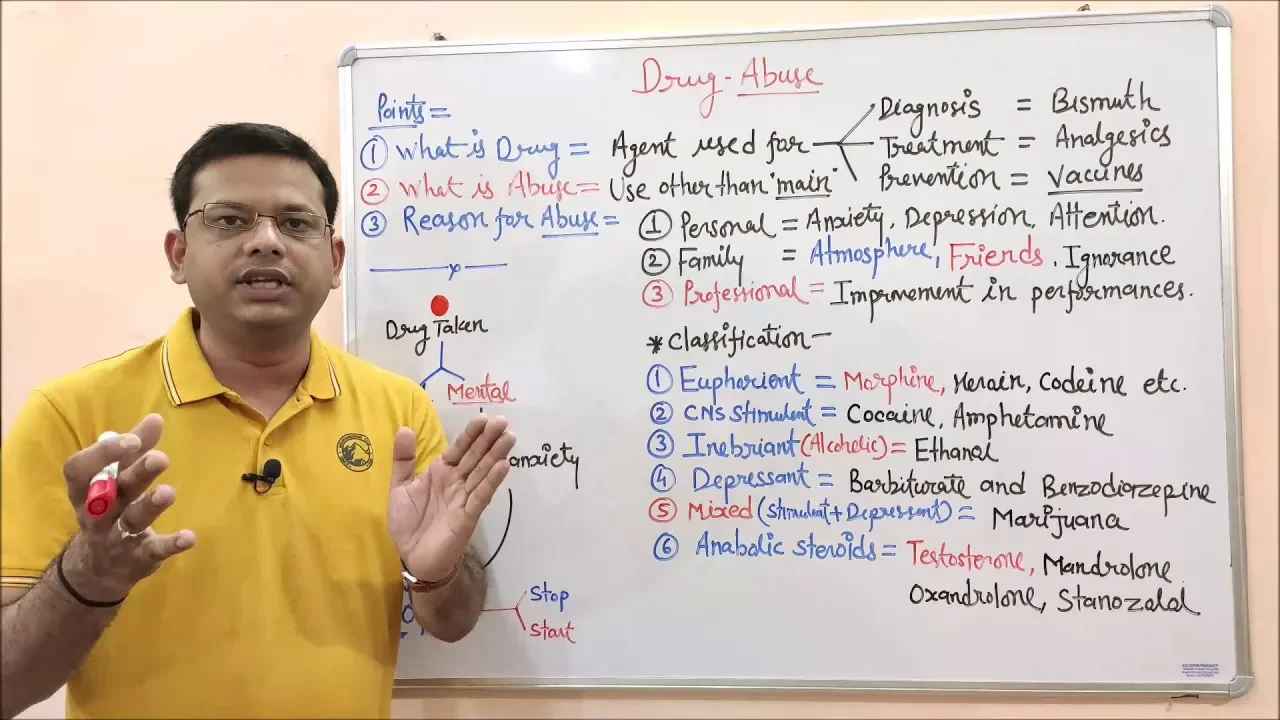 Drug-Abuse
Points=
① What is Drug = Agent used for
Diagnosis = Bismuth
Treatment = Analgesics
Prevention = Vaccines
② What is Abuse = Use other than "main"
③ Reason for Abuse =
① Personal = Anxiety, Depression, Attention.
② Family = Atmosphere, Friends, Ignorance
③ Professional = Improvement in performances.
Drug Taken
Mental
anxiety
Stop
Start
* Classification-
① Euphorient = Morphine, Herain, Codeine etc.
② CNS Stimulent = Cocaine, Amphetamine
③ Inebriant (Alcoholic) = Ethanal
④ Depressant = Barbiturate and Benzodiazepine
⑤ Mixed (Stimulent + Depressent) = Marijuana
⑥ Anabolic steroids = Testosterone, Mandrolone
Oxandrolone, Stanozalal